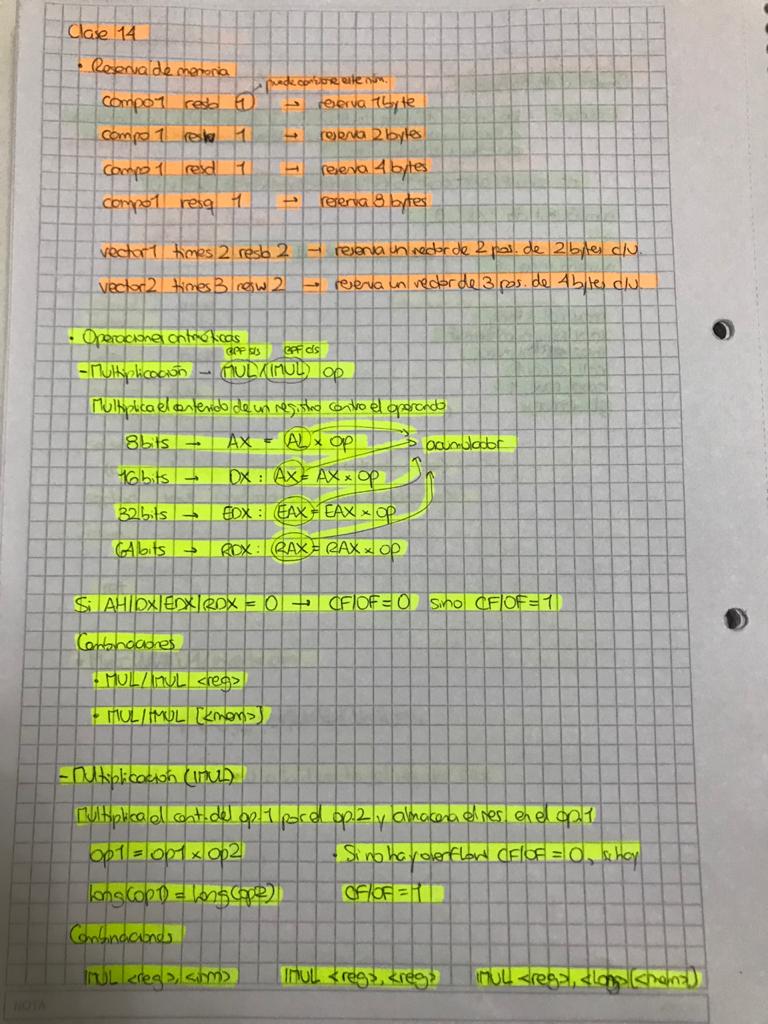 Clase 14
• Reserva de memoria
→ puede cambiarse este núm.
campo1 resb 1 → reserva 1 byte
campo1 resw 1 → reserva 2 bytes
campo1 resd 1 → reserva 4 bytes
campo1 resq 1 → reserva 8 bytes
vector1 times 2 resb 2 → reserva un vector de 2 pos. de 2 bytes c/u.
vector2 times 3 resw 2 → reserva un vector de 3 pos. de 4 bytes c/u.
• Operaciones aritméticas
BPF s/s BPF c/s
- Multiplicación → MUL/IMUL op
Multiplica el contenido de un registro contra el operando
8 bits → AX = AL x op → acumulador
16 bits → DX : AX = AX x op
32 bits → EDX : EAX = EAX x op
64 bits → RDX : RAX = RAX x op
Si AH/DX/EDX/RDX = 0 → CF/OF = 0 sino CF/OF = 1
Combinaciones
• MUL/IMUL <reg>
• MUL/IMUL [<mem>]
- Multiplicación (IMUL)
Multiplica el cont. del op.1 por el op.2 y almacena el res. en el op.1
op1 = op1 x op2 • Si no hay overflow CF/OF = 0, si hay
long(op1) = long(op2) CF/OF = 1
Combinaciones
IMUL <reg>, <inm> IMUL <reg>, <reg> IMUL <reg>, <long>[<mem>]
NOTA